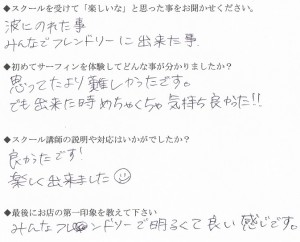 ◆スクールを受けて「楽しいな」と思った事をお聞かせください。
波にのれた事
みんなでフレンドリーに出来た事.
◆初めてサーフィンを体験してどんな事が分かりましたか?
思ってたより難しかったです。
でも出来た時めちゃくちゃ気持ち良かった!!
◆スクール講師の説明や対応はいかがでしたか?
良かったです!
楽しく出来ました☺
◆最後にお店の第一印象を教えて下さい
みんなフレンドリーで明るくて良い感じです。